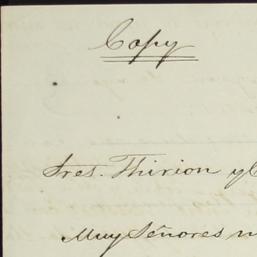 Copy
Sres. Thirion y C
Muy Señores